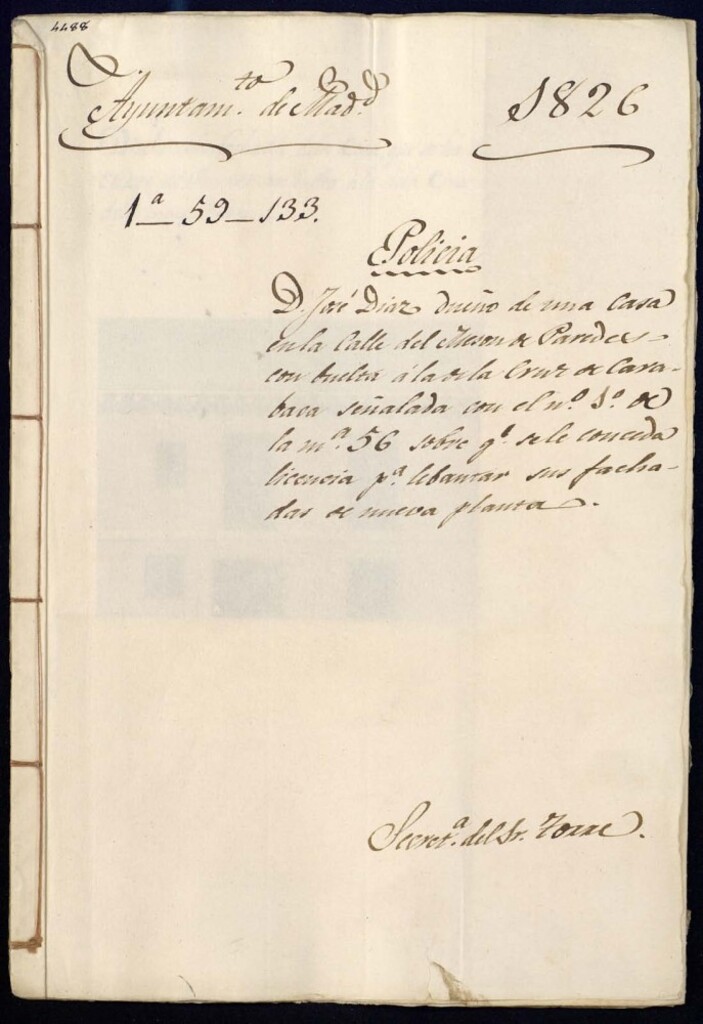 4488
Ayuntam.to de Mad.d
1826
1a_59_133.
Policia
D. José Diaz dueño de una Casa
en la Calle del Meson de Paredes
con buelta á la de la Cruz de Cara-
baca señalada con el n.o 1.o de
la m.a 56 sobre q.e se le conceda
licencia p.a lebantar sus facha-
das de nueva planta.
Secret.a del Sr. Torre.